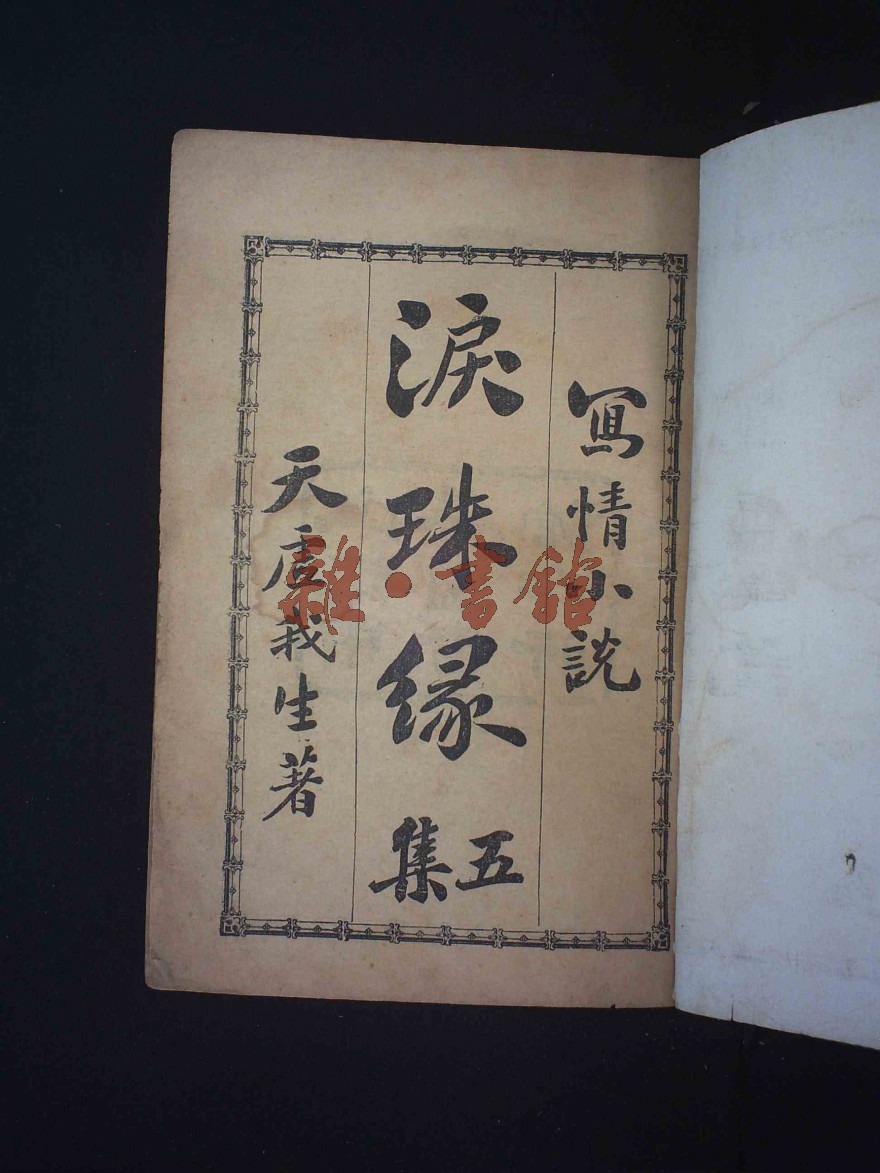 寫情小說
淚珠緣
五集
天虛我生著
雜·書館